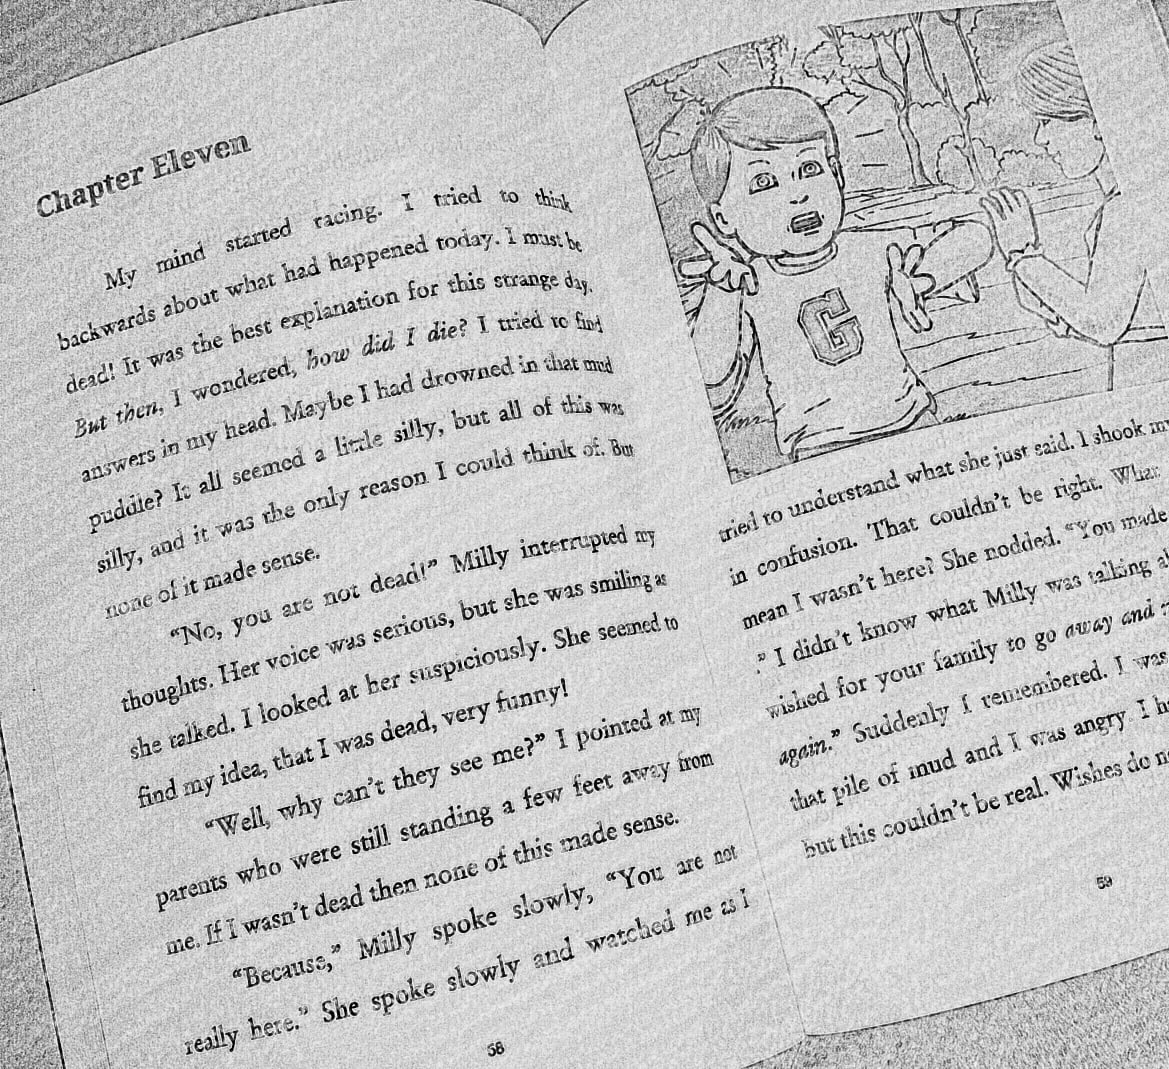 Chapter Eleven
My mind started racing. I tried to think
backwards about what had happened today. I must be
dead! It was the best explanation for this strange day.
But then, I wondered, how did I die? I tried to find
answers in my head. Maybe I had drowned in that mud
puddle? It all seemed a little silly, but all of this was
silly, and it was the only reason I could think of. But
none of it made sense.
“No, you are not dead!” Milly interrupted my
thoughts. Her voice was serious, but she was smiling as
she talked. I looked at her suspiciously. She seemed to
find my idea, that I was dead, very funny!
“Well, why can’t they see me?” I pointed at my
parents who were still standing a few feet away from
me. If I wasn’t dead then none of this made sense.
“Because,” Milly spoke slowly, “You are not
really here.” She spoke slowly and watched me as I
58
G
tried to understand what she just said. I shook my
in confusion. That couldn’t be right. What
mean I wasn’t here? She nodded. “You made
.” I didn’t know what Milly was talking
wished for your family to go away and
again.” Suddenly I remembered. I was
that pile of mud and I was angry. I
but this couldn’t be real. Wishes do
59